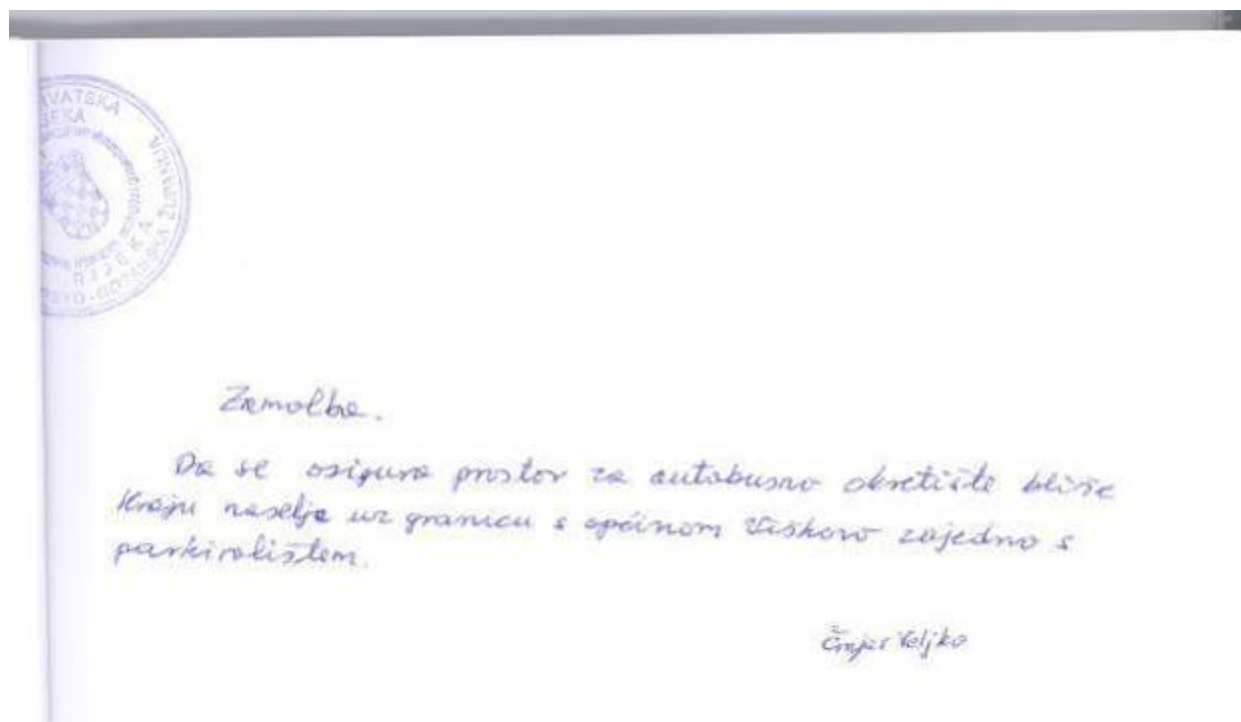 RVATSKA
RIJEKA
Zamolba.
Da se osigura prostor za autobusno okretište bliže
kraju naselja uz granicu s općinom Viškovo zajedno s
parkiralištem.
Veljko